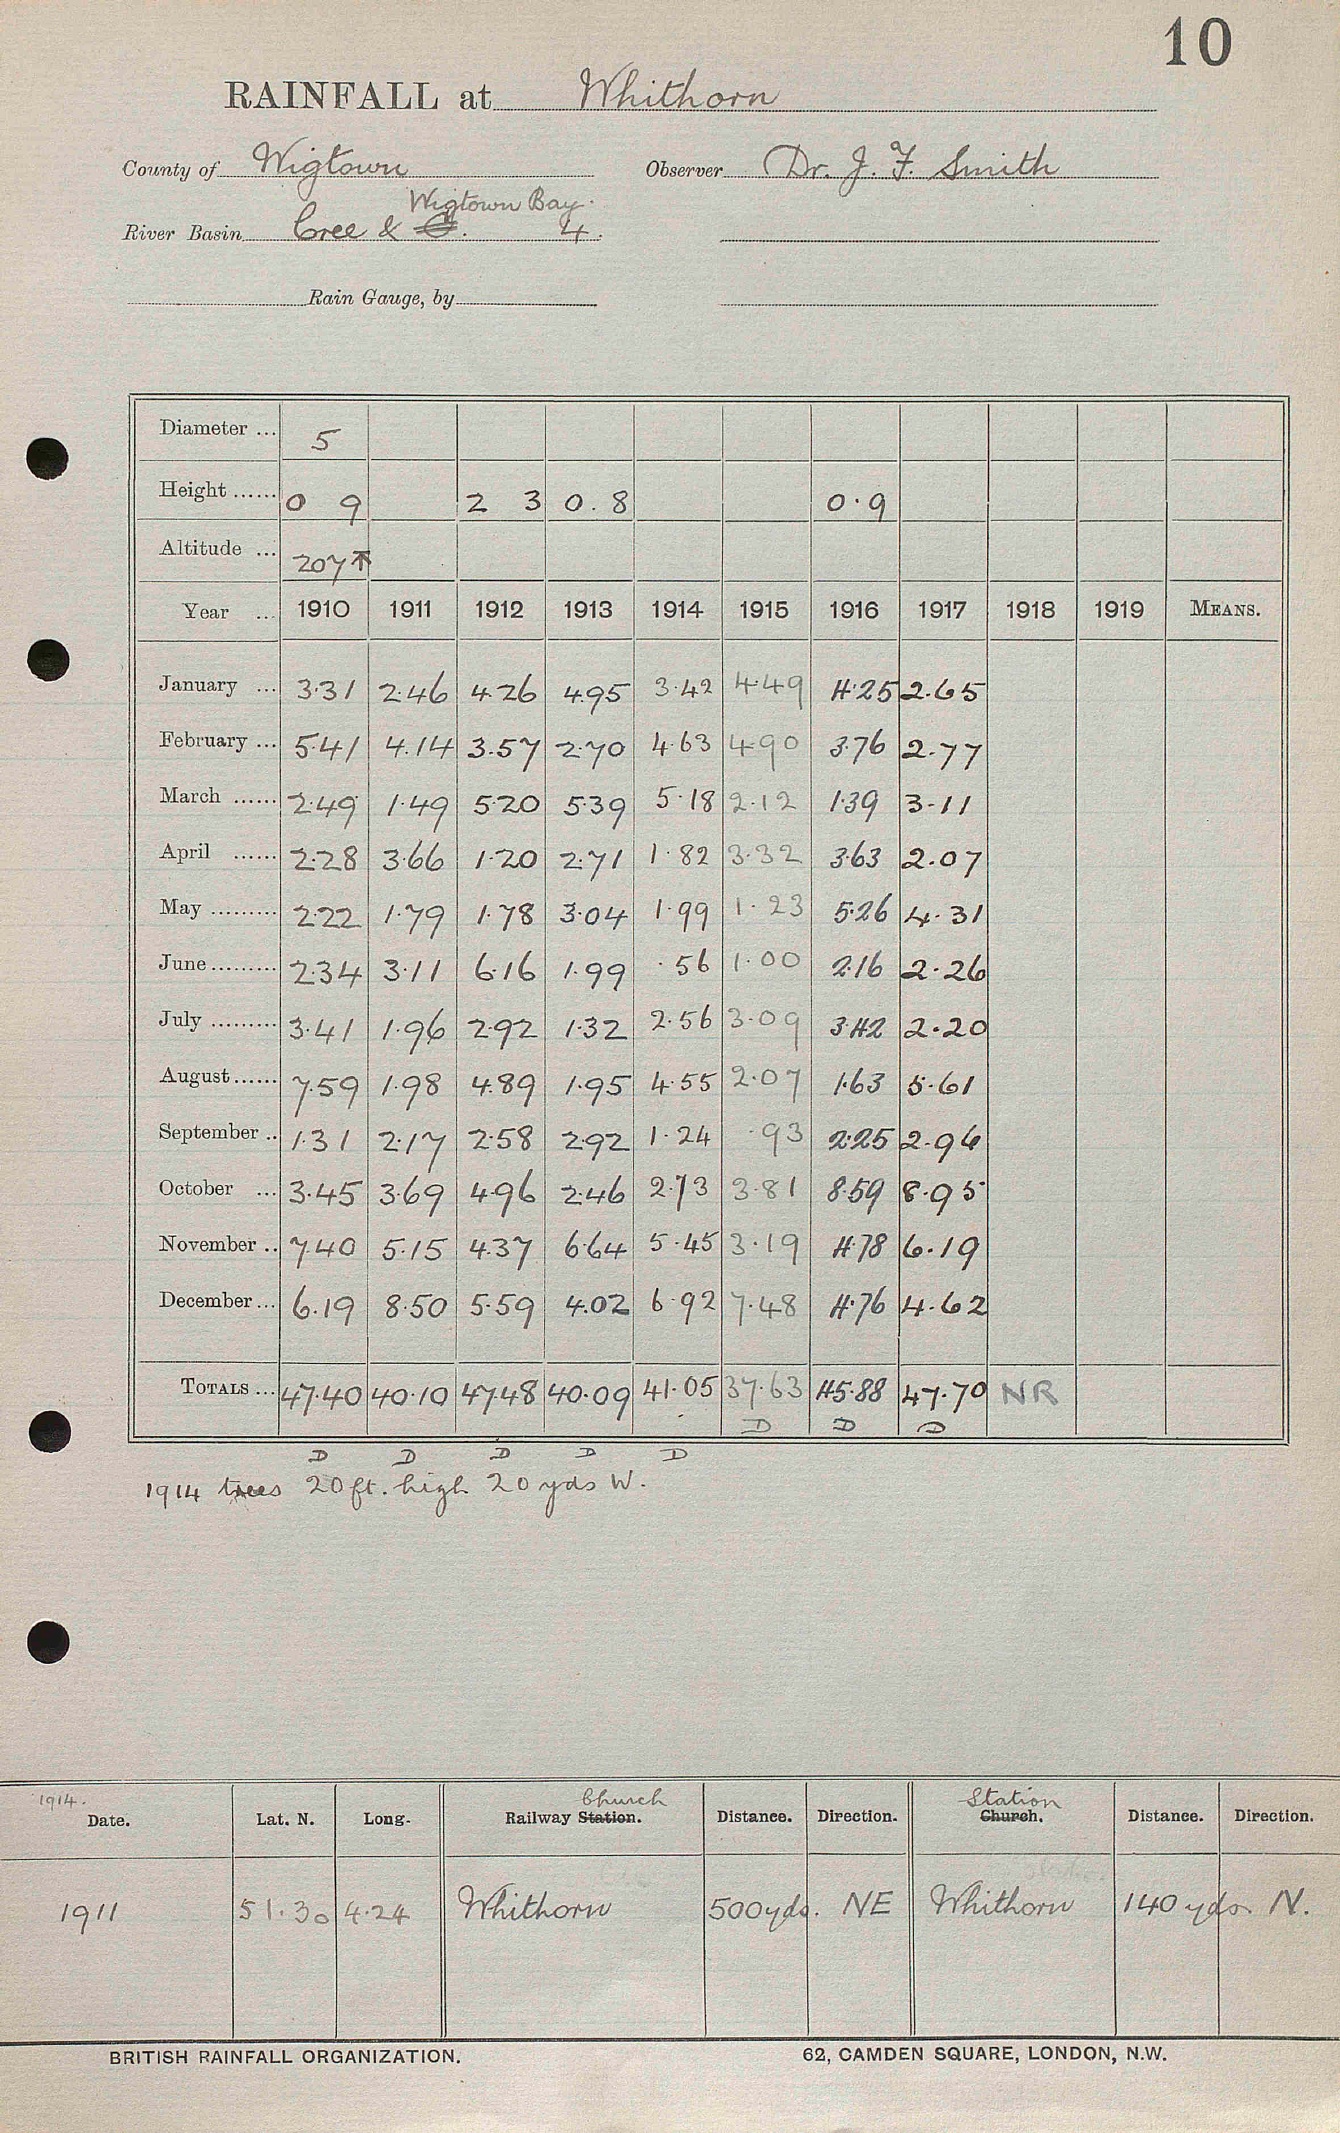 10
RAINFALL at Whithorn
County of Wigtown Observer Dr. J. F. Smith
Wigtown Bay.
River Basin Cree & 4.
Rain Gauge, by
Diameter ... 5
Height ...... 0 9 2 3 0.8 0.9
Altitude ... 207
Year ... 1910 1911 1912 1913 1914 1915 1916 1917 1918 1919 MEANS.
January ... 3.31 2.46 4.26 4.95 3.42 4.49 4.25 2.65
February ... 5.41 4.14 3.57 2.70 4.63 4.90 3.76 2.77
March ...... 2.49 1.49 5.20 5.39 5.18 2.12 1.39 3.11
April ...... 2.28 3.66 1.20 2.71 1.82 3.32 3.63 2.07
May ......... 2.22 1.79 1.78 3.04 1.99 1.23 5.26 4.31
June ......... 2.34 3.11 6.16 1.99 .56 1.00 2.16 2.26
July ......... 3.41 1.96 2.92 1.32 2.56 3.09 3.42 2.20
August ...... 7.59 1.98 4.89 1.95 4.55 2.07 1.63 5.61
September .. 1.31 2.17 2.58 2.92 1.24 .93 2.25 2.96
October ... 3.45 3.69 4.96 2.46 2.73 3.81 8.59 8.95
November .. 7.40 5.15 4.37 6.64 5.45 3.19 4.78 6.19
December ... 6.19 8.50 5.59 4.02 6.92 7.48 4.76 4.62
TOTALS ... 47.40 40.10 47.48 40.09 41.05 37.63 45.88 47.70 NR
D D D
D D D D D
1914 trees 20 ft. high 20 yds W.
1914. Church Station
Date. Lat. N. Long. Railway Station. Distance. Direction. Church. Distance. Direction.
1911 51.30 4.24 Whithorn 500 yds. NE Whithorn 140 yds. N.
BRITISH RAINFALL ORGANIZATION. 62, CAMDEN SQUARE, LONDON, N.W.